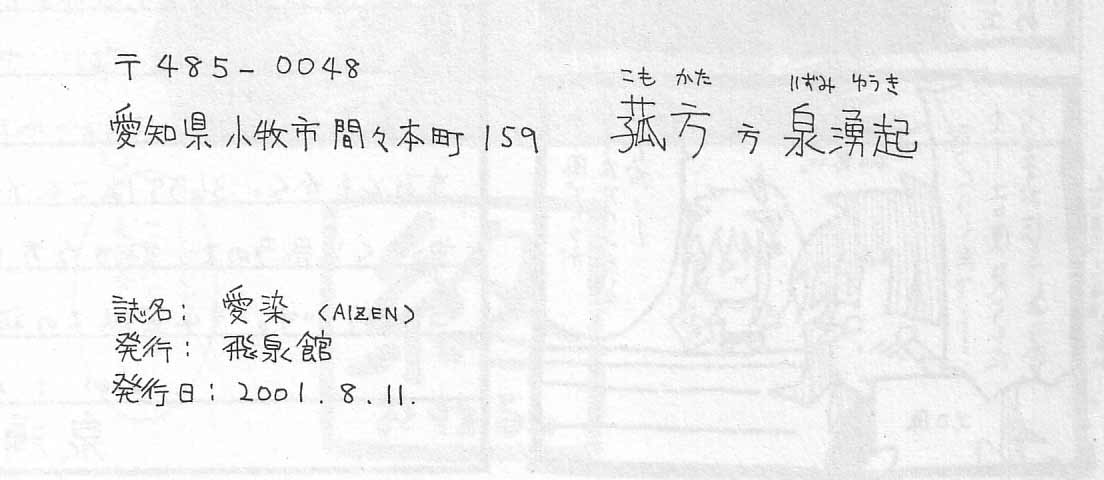 〒485-0048
愛知県小牧市間々本町159
こもかた いずみ ゆうき
菰方方 泉湧起
誌名: 愛染〈AIZEN〉
発行: 飛泉館
発行日: 2001.8.11.